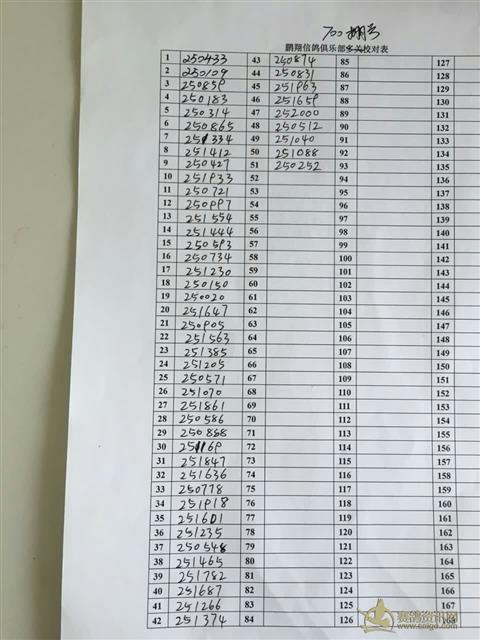 700 翔号
鹏翔信鸽俱乐部多关校对表
1 250433 43 250874 85 127
2 250109 44 250831 86 128
3 250839 45 251963 87 129
4 250183 46 251659 88 130
5 250314 47 252000 89 131
6 250865 48 250512 90 132
7 251334 49 251040 91 133
8 251412 50 251088 92 134
9 250427 51 250252 93 135
10 251933 52 94 136
11 250721 53 95 137
12 250997 54 96 138
13 251554 55 97 139
14 251444 56 98 140
15 250593 57 99 141
16 250734 58 100 142
17 251230 59 101 143
18 250150 60 102 144
19 250020 61 103 145
20 251647 62 104 146
21 250905 63 105 147
22 251563 64 106 148
23 251385 65 107 149
24 251205 66 108 150
25 250571 67 109 151
26 251070 68 110 152
27 251861 69 111 153
28 250586 70 112 154
29 250888 71 113 155
30 251169 72 114 156
31 251847 73 115 157
32 251636 74 116 158
33 250778 75 117 159
34 251918 76 118 160
35 251601 77 119 161
36 251235 78 120 162
37 250548 79 121 163
38 251465 80 122 164
39 251782 81 123 165
40 251687 82 124 166
41 251266 83 125 167
42 251374 84 126 168
赛鸽资讯网
www.saige.com